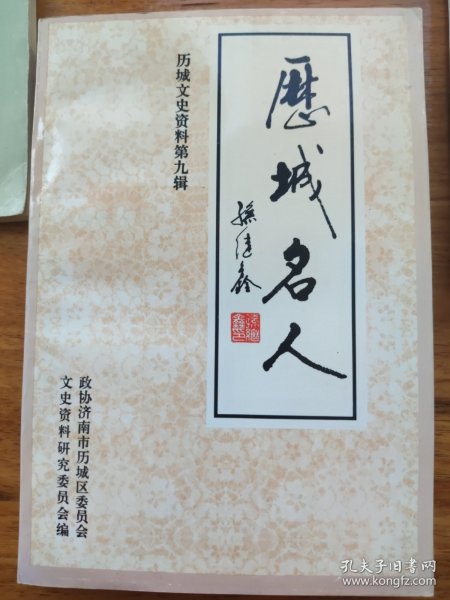 歷城名人
孫健鑫
历城文史资料第九辑
政协济南市历城区委员会
文史资料研究委员会编
孔夫子旧书网
www.kongfz.com